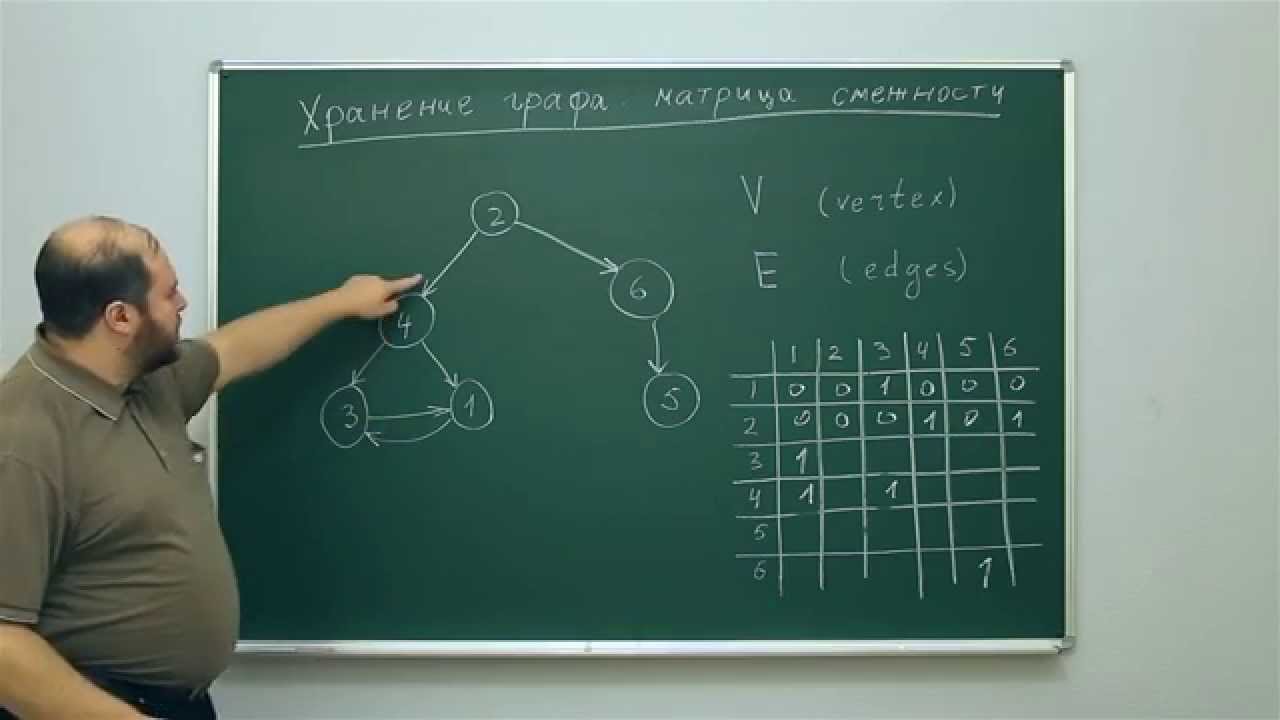 Хранение графа. матрица смежности
V (vertex)
E (edges)
2
6
4
3 1
5
1 2 3 4 5 6
1 0 0 1 0 0 0
2 0 0 0 1 0 1
3 1
4 1 1
5
6 1